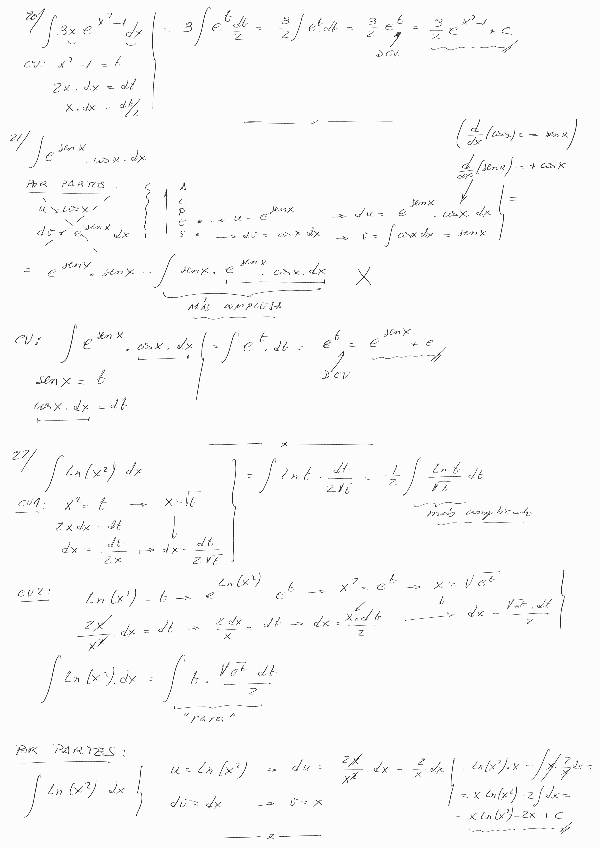 20/ ∫ 3x e^(x²-1) dx = 3 ∫ e^t dt/2 = 3/2 ∫ e^t dt = 3/2 e^t = 3/2 e^(x²-1) + C
CV: x² - 1 = t
DCV
2x · dx = dt
x · dx = dt/2
21/ ∫ e^(sen x) · cos x · dx
(d/dx (cos x) = - sen x)
d/dx (sen x) = + cos x
POR PARTES:
u = cos x
dv = e^(sen x) dx
A
L
P
E → u = e^(sen x) → du = e^(sen x) · cos x · dx
S → dv = cos x dx → v = ∫ cos x dx = sen x
=
= e^(sen x) · sen x - ∫ sen x · e^(sen x) · cos x · dx X
MÁS COMPLEJA
CV: ∫ e^(sen x) · cos x · dx = ∫ e^t · dt = e^t = e^(sen x) + C
sen x = t
DCV
cos x · dx = dt
x
22/ ∫ ln(x²) dx = ∫ ln t · dt/(2√t) = 1/2 ∫ ln t/√t dt
CV1: x² = t → x = √t
más complicada
2x dx = dt
dx = dt/2x → dx = dt/(2√t)
CV2: ln(x²) = t → e^(ln(x²)) = e^t → x² = e^t → x = √e^t
2x/x² dx = dt → 2dx/x = dt → dx = x · dt/2 → dx = √e^t · dt/2
∫ ln(x²) · dx = ∫ t · √e^t dt/2
"rara"
POR PARTES:
∫ ln(x²) dx
u = ln(x²) → du = 2x/x² dx = 2/x dx
dv = dx → v = x
= ln(x²) · x - ∫ x · 2/x dx =
= x ln(x²) - 2 ∫ dx =
= x ln(x²) - 2x + C